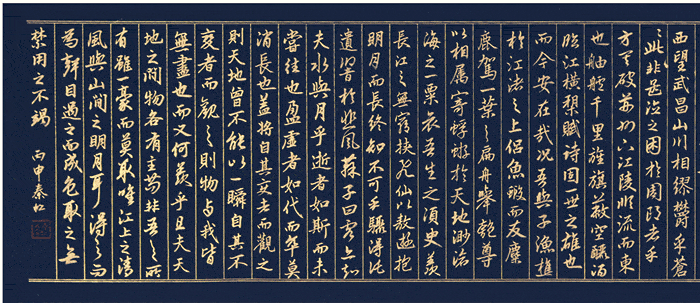 西望武昌山川相繆欝乎蒼
〻此非孟德之困於周郎者乎
方其破荊州下江陵順流而東
也舳艫千里旌旗蔽空釃酒
臨江橫槊賦詩固一世之雄也
而今安在哉况吾與子漁樵
於江渚之上侶魚蝦而友麋
鹿駕一葉之扁舟舉匏尊
以相属寄蜉蝣於天地渺滄
海之一粟哀吾生之須臾羡
長江之無窮挾飛仙以敖遊抱
明月而長終知不可乎驟得託
遺響於悲風蘇子曰客亦知
夫水與月乎逝者如斯而未
嘗往也盈虛者如代而卒莫
消長也蓋將自其變者而觀之
則天地曾不能以一瞬自其不
變者而觀之則物與我皆
無盡也而又何羡乎且夫天
地之間物各有主苟非吾之所
有雖一豪而莫取唯江上之清
風與山間之明月耳得之而
為聲目遇之而成色取之無
禁用之不竭 丙申秦